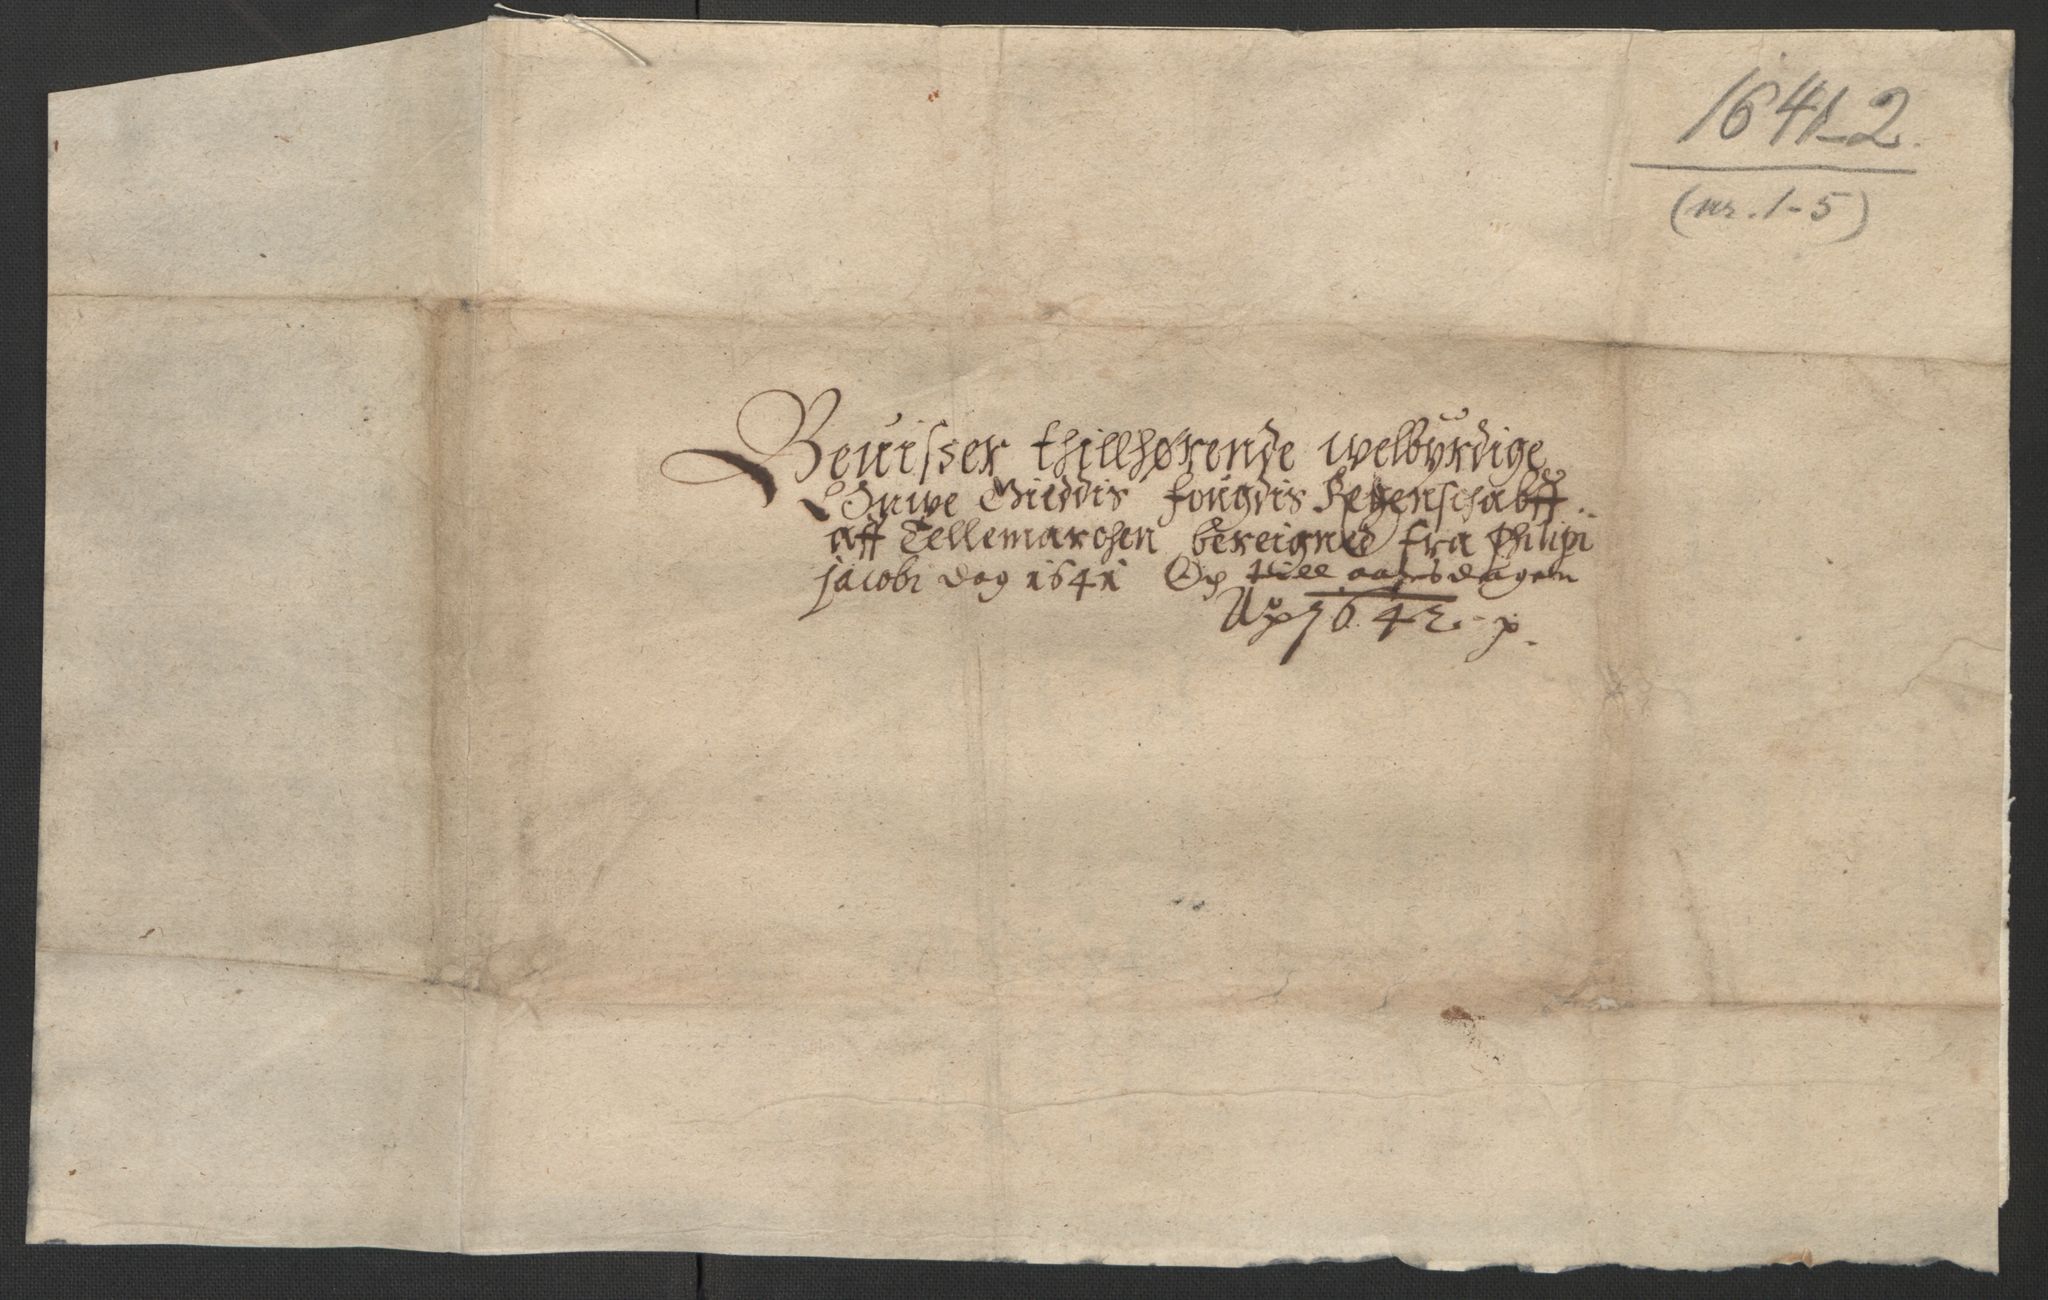 1641-2.
(nr. 1-5)
Beuisser thillhørende welbyrdige
Ouwe Gieddis fougdis Regenschabff
aff Tellemarchen bereigned fra Philipi
jacobi dag 1641 Op till aarsdagen
1642